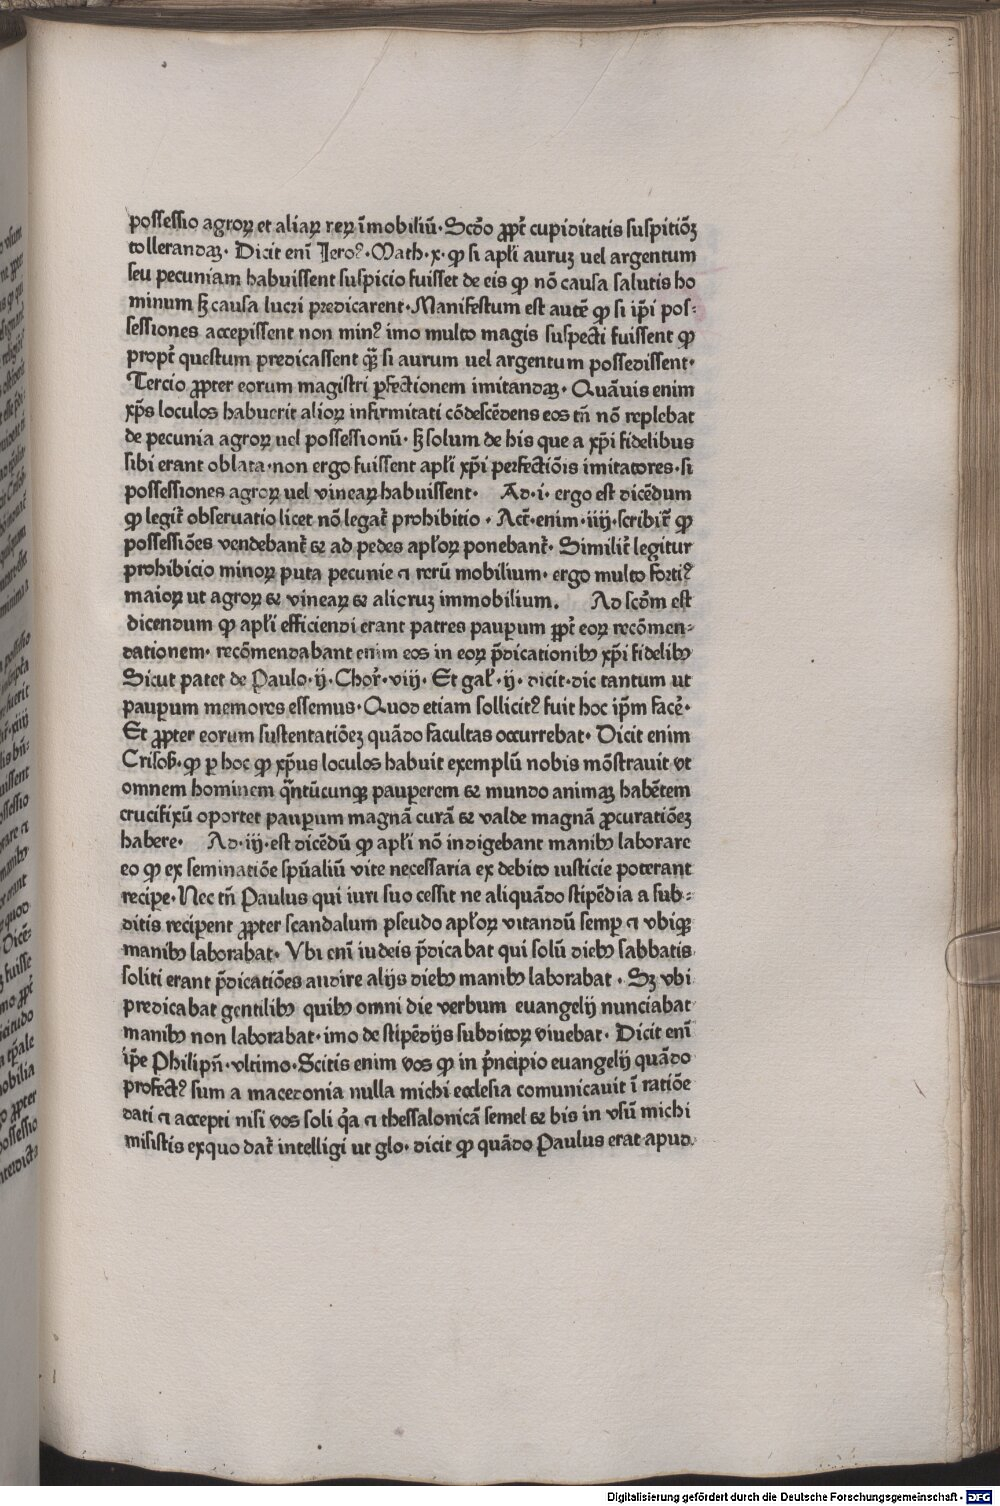 possessio agroꝝ et aliaꝝ reꝝ ĩmobiliũ· Scďo ꝓpt̃ cupiditatis suspitiõꝫ
tollerandaꝫ· Dicit eni͂ Iero⁹·Math·x·ꝙ si apl̃i auruꝫ uel argentum
seu pecuniam habuissent suspicio fuisset de eis ꝙ nõ causa salutis ho
minum sꝫ causa lucri predicarent·Manifestum est autẽ ꝙ si ip̃i pos⸗
sessiones accepissent non min⁹ imo multo magis suspecti fuissent ꝙ
propt̃ questum predicassent q̃ꝫ si aurum uel argentum possedissent·
Tercio ꝓpter eorum magistri ꝑfectionem imitandaꝫ· Quãuis enim
xp̃s loculos habuerit alioꝝ infirmitati cõdescẽdens eos tñ nõ replebat
de pecunia agroꝝ uel possessionũ· sꝫ solum de his que a xp̃i fidelibus
sibi erant oblata·non ergo fuissent apl̃i xp̃i perfectiõis imitatores·si
possessiones agroꝝ uel vineaꝝ habuissent· Ad·i· ergo est dicẽdum
ꝙ legit̃ obseruatio licet nõ legat̃ prohibitio · Act̃·enim·iiij·scribit̃ ꝙ
possessiões vendebant̃ & ad pedes apl̃oꝝ ponebant̃· Similit̃ legitur
prohibicio minoꝝ puta pecunie ⁊ rerũ mobilium· ergo multo forti⁹
maioꝝ ut agroꝝ & vineaꝝ & alioruꝫ immobilium. Ad scďm est
dicendum ꝙ apl̃i efficiendi erant patres pauꝑum ꝓpt̃ eoꝝ recõmen⸗
dationem· recõmendabant enim eos in eoꝝ p̃dicationibꝫ xp̃i fidelibꝫ
Sicut patet de Paulo·ij·Choř·viij· Et gal̃·ij· dicit·dic tantum ut
pauꝑum memores essemus·Quod etiam sollicit⁹ fuit hoc ip̃m facẽ·
Et ꝓpter eorum sustentatiõeꝫ quãdo facultas occurrebat· Dicit enim
Crisoſt̃·ꝙ ꝑ hoc ꝙ xp̃us loculos habuit exemplũ nobis mõstrauit vt
omnem hominem q̃ntũcunqꝫ pauꝑerem & mundo animaꝫ habẽtem
crucifixũ oportet pauꝑum magnã curã & valde magnã ꝓcuratiõeꝫ
habere· Ad·iij·est dicẽdũ ꝙ apl̃i nõ indigebant manibꝫ laborare
eo ꝙ ex seminatiõe sp̃ualiũ vite necessaria ex debito iusticie poterant
reciꝑe·Nec tñ Paulus qui iuri suo cessit ne aliquãdo stipẽdia a sub⸗
ditis reciꝑent ꝓpter scandalum pseudo apl̃oꝝ vitandũ semꝑ ⁊ vbiqꝫ
manibꝫ laborabat· Vbi eni͂ iudeis p̃dicabat qui solũ diebꝫ sabbatis
soliti erant p̃dicatiões audire alijs diebꝫ manibꝫ laborabat · Sꝫ vbi
predicabat gentilibꝫ quibꝫ omni die verbum euangelij nunciabat
manibꝫ non laborabat·imo de stipẽdijs subditoꝝ viuebat· Dicit eni͂
ip̃e Philipñ·vltimo·Scitis enim vos ꝙ in p̃ncipio euangelij quãdo
profect⁹ sum a macedonia nulla michi ecclesia comunicauit ĩ ratiõe
dati ⁊ accepti nisi vos soli q̃a ⁊ thessalonicã semel & bis in vsũ michi
misistis exquo dat̃ intelligi ut glo· dicit ꝙ quãdo Paulus erat apud
Digitalisierung gefördert durch die Deutsche Forschungsgemeinschaft - DFG